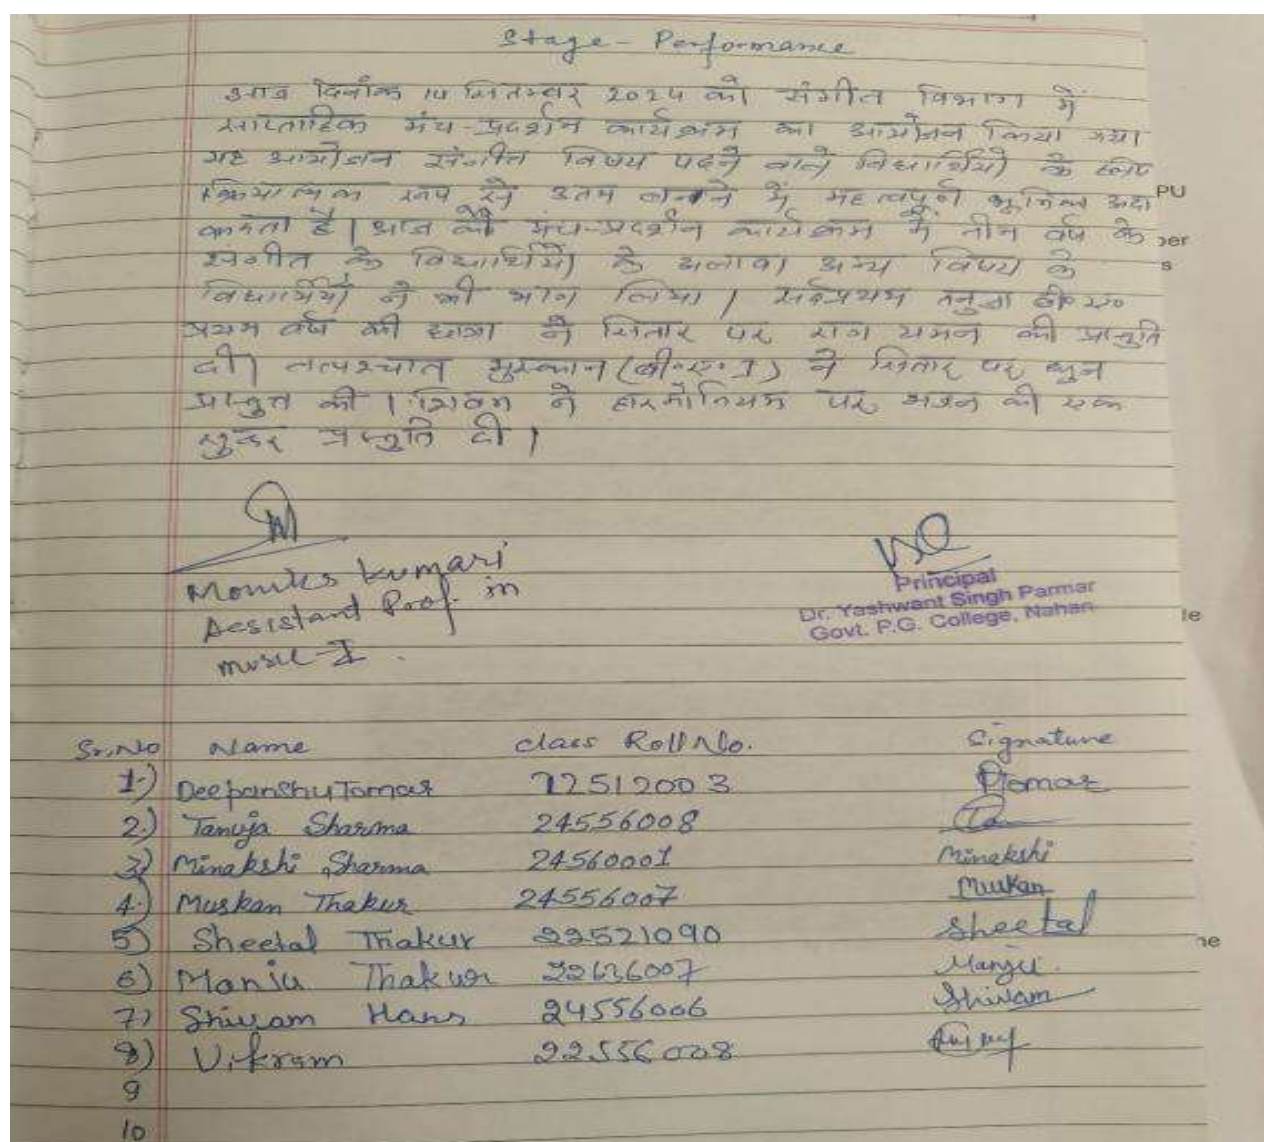 Stage - Performance
आज दिनांक 14 सितम्बर 2024 को संगीत विभाग में
साप्ताहिक मंच-प्रदर्शन कार्यक्रम का आयोजन किया गया।
यह आयोजन संगीत विषय पढ़ने वाले विद्यार्थियों के लिए
क्रियात्मक रूप से उतम बनाने में महत्वपूर्ण भूमिका अदा
करता है। आज के मंच-प्रदर्शन कार्यक्रम में तीन वर्ष के
संगीत के विद्यार्थियों के अलावा अन्य विषय के
विद्यार्थियों ने भी भाग लिया। सर्वप्रथम तनुजा बी० ए०
प्रथम वर्ष की छात्रा ने सितार पर राग यमन की प्रस्तुति
दी। तत्पश्चात मुस्कान (बी.ए. I) ने सितार पर धुन
प्रस्तुत की। शिवम ने हारमोनियम पर भजन की एक
सुन्दर प्रस्तुति दी।
Monika Kumari
Assistant Prof. in
music-I.
Principal
Dr. Yashwant Singh Parmar
Govt. P.G. College, Nahan
Sr.No Name class Roll No. Signature
1.) Deepanshu Tomar 22512003 Dtomar
2.) Tanuja Sharma 24556008
3) Minakshi Sharma 24560001 Minakshi
4.) Muskan Thakur 24556007 Muskan
5) Sheetal Thakur 22521090 Sheetal
6) Manju Thakur Manju
7) Shivam Hans 24556006 Shivam
8) Vikram 22556008
9
10
PU
per
s
le
ne